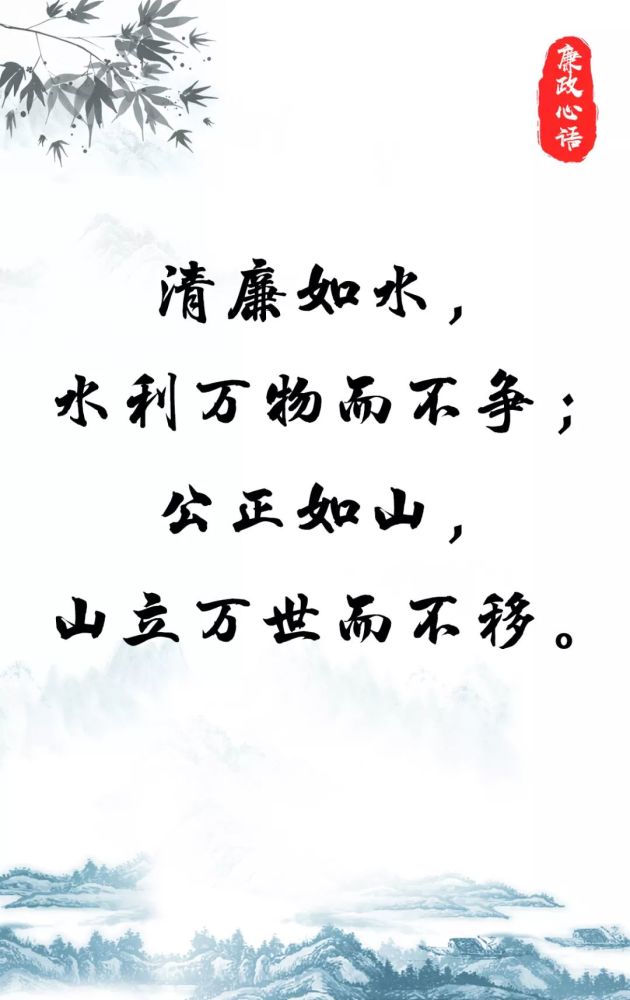 廉政心语
清廉如水，
水利万物而不争；
公正如山，
山立万世而不移。